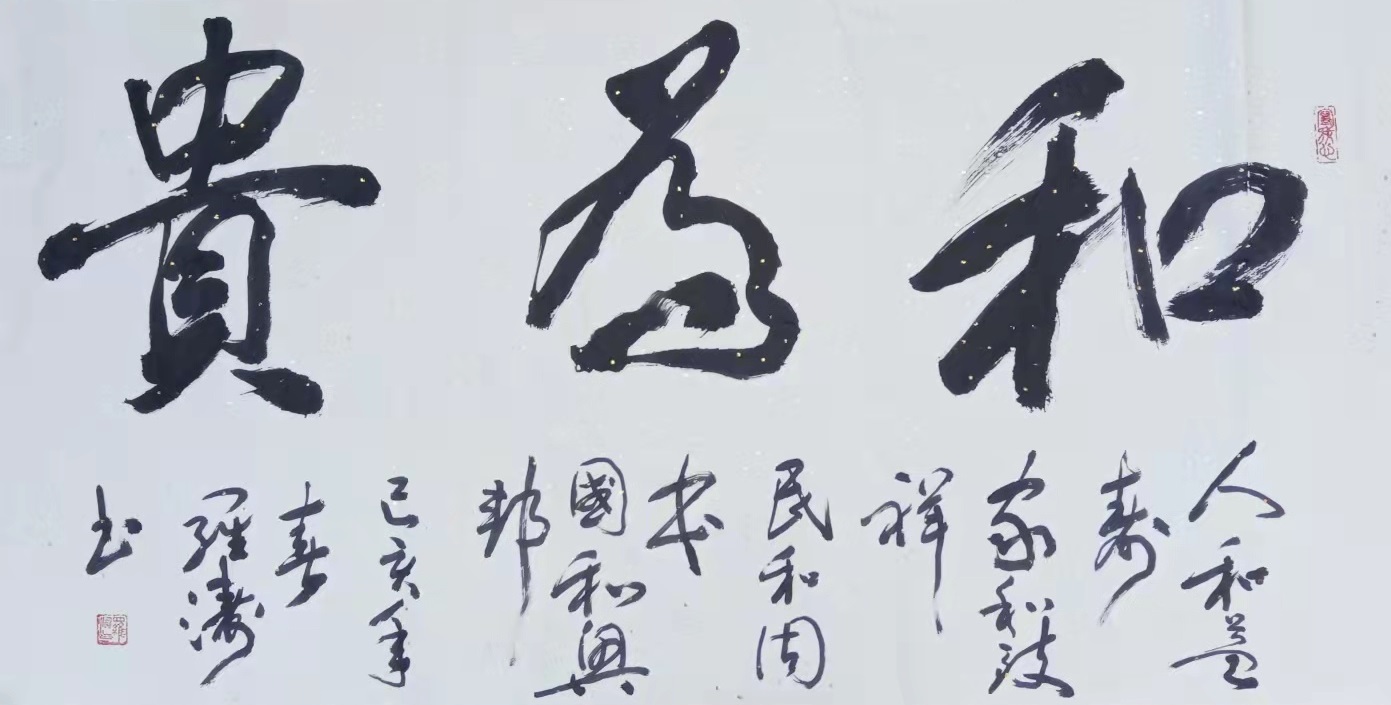 和為貴
人和益
壽
家和致
祥
民和固
本
國和興
邦
己亥年
春
羅濤
书